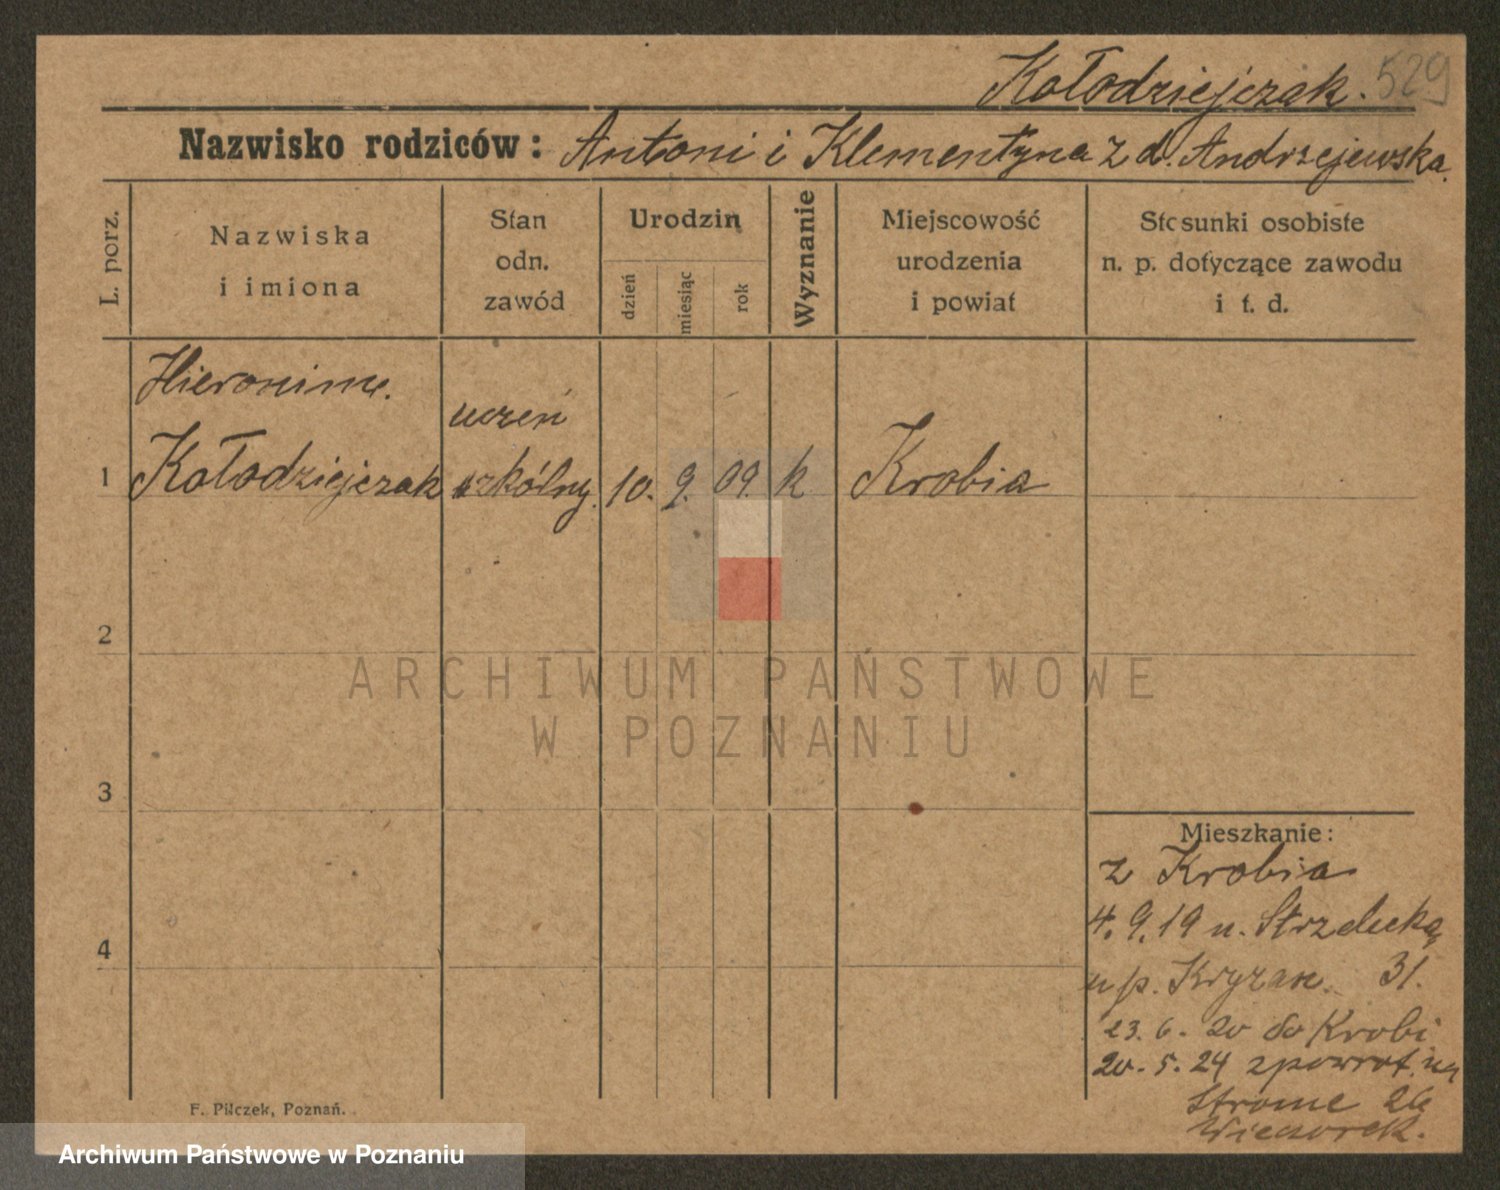 Kołodziejczak. 529
Nazwisko rodziców: Antoni i Klementyna z d. Andrzejewska.
L. porz.
Nazwiska
i imiona
Stan
odn.
zawód
Urodzin
dzień
miesiąc
rok
Wyznanie
Miejscowość
urodzenia
i powiat
Stosunki osobiste
n. p. dotyczące zawodu
i t. d.
Hieronim.
uczeń
1 Kołodziejczak szkólny. 10. 9. 09. k Krobia
2
ARCHIWUM PAŃSTWOWE
W POZNANIU
3
Mieszkanie:
z Krobia
4. 9. 19 n. Strzelecką
u p. 31.
23. 6. 20 do Krobi
4
20. 5. 24 zpowrot. na
Strome 26
Wieczorek.
F. Pilczek, Poznań.
Archiwum Państwowe w Poznaniu